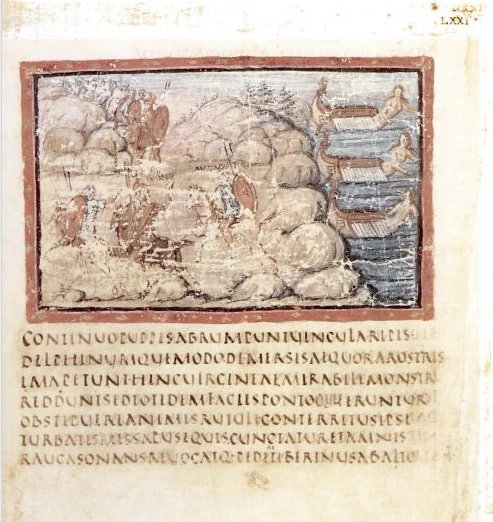 LXXI
CONTINUOPUPPISABRUMPUNTUINCULARIPIS
DELPHINUMQUEMODODEMERSISAEQUORAROSTRIS
IMAPETUNTHINCUIRGINEAEMIRABILEMONSTR
REDDUNTSETOTIDEMFACIESPONTOQUEFERUNTUR
OBSTIPUEREANIMISRUTULICONTERRITUSIPSE
TURBATISMESSAPUSEQUISCUNCTATURETAMNIS
RAUCASONANSREUOCATQ·PEDEMTIBERINUSABALTO